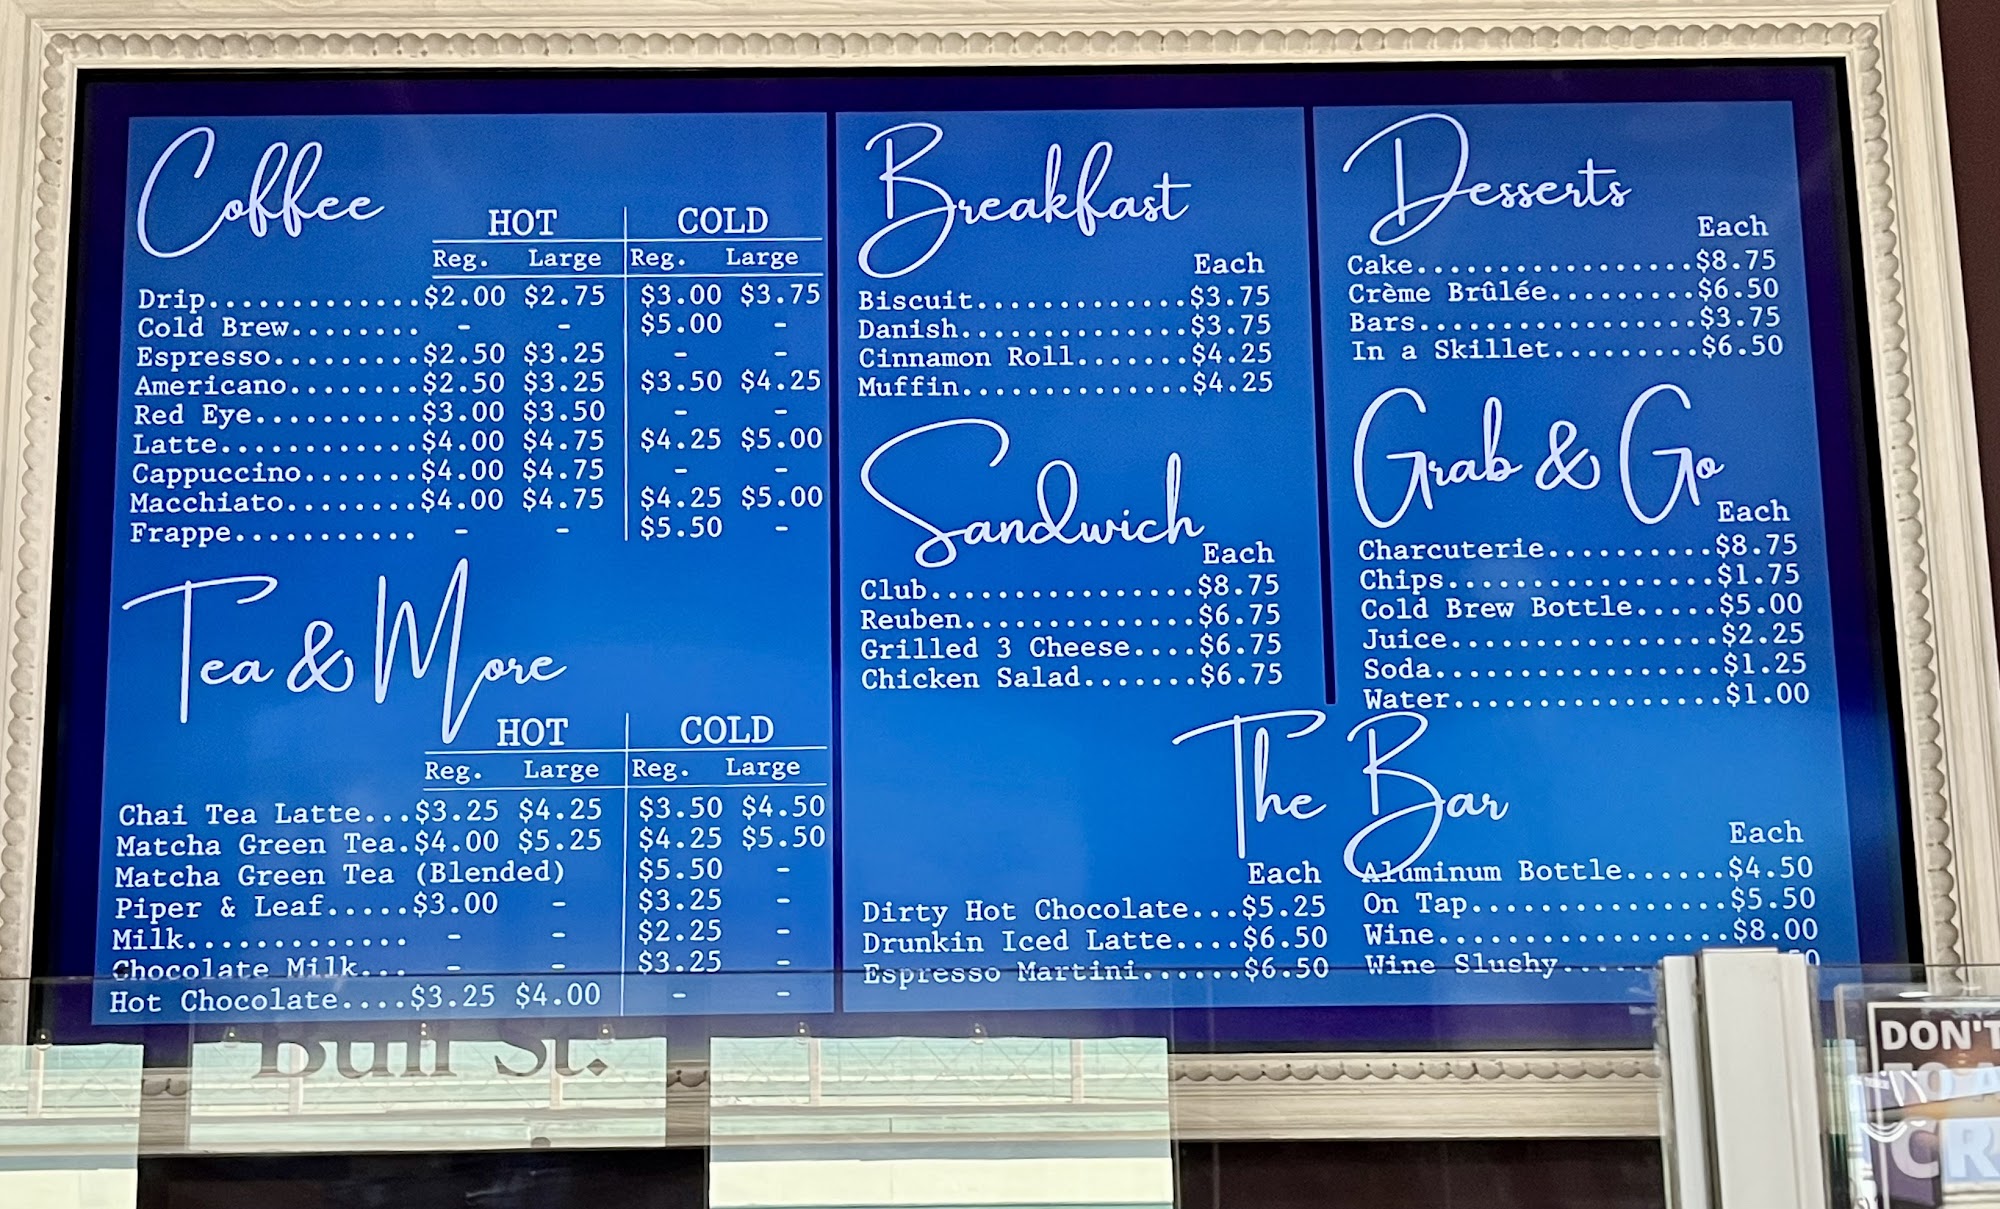 Coffee
HOT COLD
Reg. Large Reg. Large
Drip.............$2.00 $2.75 $3.00 $3.75
Cold Brew........ - - $5.00 -
Espresso.........$2.50 $3.25 - -
Americano........$2.50 $3.25 $3.50 $4.25
Red Eye..........$3.00 $3.50 - -
Latte............$4.00 $4.75 $4.25 $5.00
Cappuccino.......$4.00 $4.75 - -
Macchiato........$4.00 $4.75 $4.25 $5.00
Frappe........... - - $5.50 -
Tea & More
HOT COLD
Reg. Large Reg. Large
Chai Tea Latte...$3.25 $4.25 $3.50 $4.50
Matcha Green Tea.$4.00 $5.25 $4.25 $5.50
Matcha Green Tea (Blended) $5.50 -
Piper & Leaf.....$3.00 - $3.25 -
Milk............. - - $2.25 -
Chocolate Milk... - - $3.25 -
Hot Chocolate....$3.25 $4.00 - -
Breakfast
Each
Biscuit.............$3.75
Danish..............$3.75
Cinnamon Roll.......$4.25
Muffin..............$4.25
Sandwich
Each
Club................$8.75
Reuben..............$6.75
Grilled 3 Cheese....$6.75
Chicken Salad.......$6.75
Desserts
Each
Cake.................$8.75
Crème Brûlée.........$6.50
Bars.................$3.75
In a Skillet.........$6.50
Grab & Go
Each
Charcuterie..........$8.75
Chips................$1.75
Cold Brew Bottle.....$5.00
Juice................$2.25
Soda.................$1.25
Water................$1.00
The Bar
Each
Dirty Hot Chocolate...$5.25
Drunkin Iced Latte....$6.50
Espresso Martini......$6.50
Each
Aluminum Bottle......$4.50
On Tap...............$5.50
Wine.................$8.00
Wine Slushy.....
Bull St.
DON'T